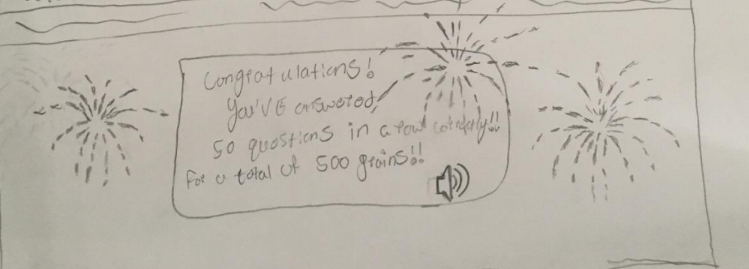 Congratulations!
You'VE answered,
50 questions in a row correctly!!
For a total of 500 grains!!